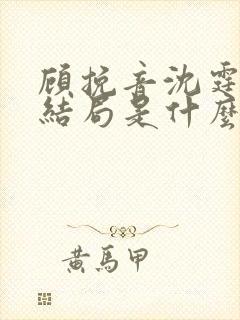 顾挽音沈霆
結局是什麼
黄馬甲